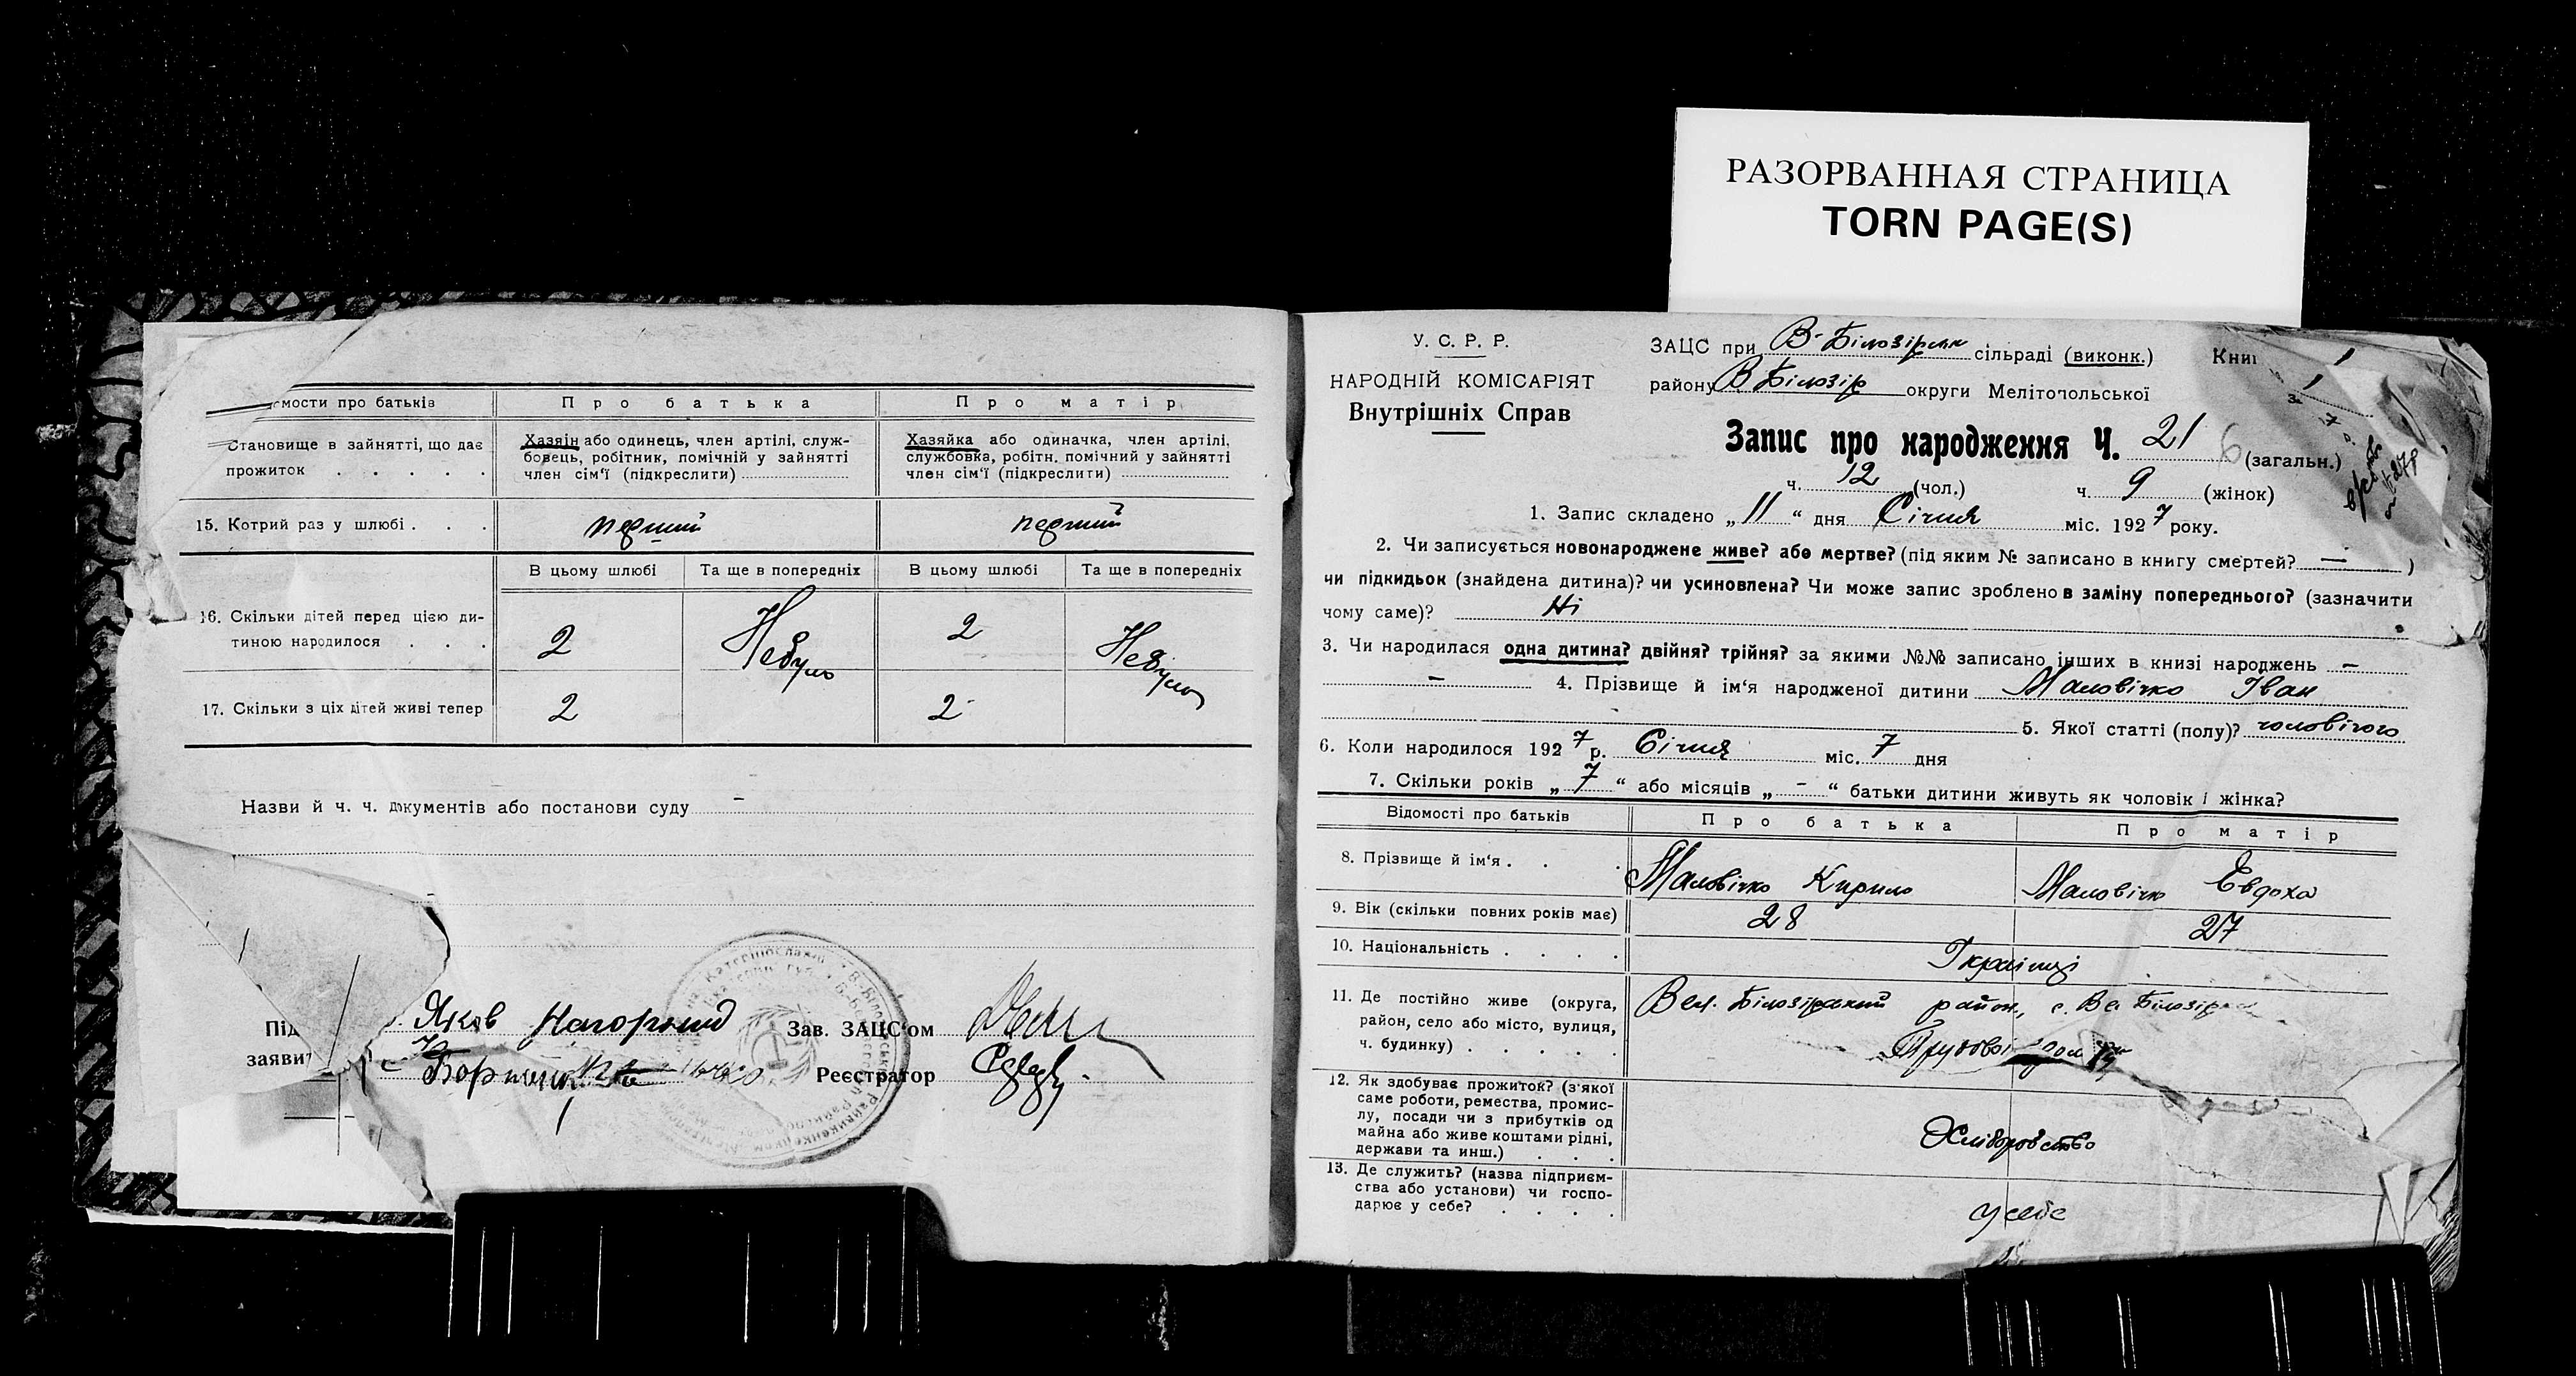 РАЗОРВАННАЯ СТРАНИЦА
TORN PAGE(S)
мости про батьків
Про батька
Про матір
Становище в зайнятті, що дає прожиток . . . . .
Хазяін або одинець, член артілі, служ-
бовець, робітник, помічній у зайнятті
член сім'ї (підкреслити)
Хазяйка або одиначка, член артілі,
службовка, робітн. помічний у зайнятті
член сім'ї (підкреслити)
15. Котрий раз у шлюбі . . .
перший
перший
В цьому шлюбі
Та ще в попередніх
В цьому шлюбі
Та ще в попередніх
16. Скільки дітей перед цією ди-
тиною народилося . . .
2
Небуло
2
Небуло
17. Скільки з ціх дітей живі тепер
2
2
Назви й ч. ч. документів або постанови суду –
Під
Яков Нагорный
заяви
Зав. ЗАЦС'ом
Реєстратор
У. С. Р. Р.
НАРОДНІЙ КОМІСАРІЯТ
Внутрішніх Справ
ЗАЦС при В-Білозірськ сільраді (виконк.)
Книг 1
району В Білозір округи Мелітопольської
Запис про народження Ч. 21 (загальн.)
ч. 12 (чол.) ч. 9 (жінок)
№ 278
1. Запис складено „11“ дня Січня міс. 1927 року.
2. Чи записується новонароджене живе? або мертве? (під яким № записано в книгу смертей? — )
чи підкидьок (знайдена дитина)? чи усиновлена? Чи може запис зроблено в заміну попереднього? (зазначити
чому саме)? Ні
3. Чи народилася одна дитина? двійня? трійня? за якими №№ записано інших в книзі народжень –
– 4. Прізвище й ім'я народженої дитини Маловічко Іван
5. Якої статті (полу)? чоловічого
6. Коли народилося 1927 р. Січня міс. 7 дня
7. Скільки років „7“ або місяців „-“ батьки дитини живуть як чоловік і жінка?
Відомості про батьків
Про батька
Про матір
8. Прізвище й ім'я . . .
Маловічко Кирило
Маловічко Евдоха
9. Вік (скільки повних років має)
28
27
10. Національність . . . .
Українці
11. Де постійно живе (округа,
район, село або місто, вулиця,
ч. будинку) . . . . .
Вел. Білозірський район, с. Ве Білозір
12. Як здобуває прожиток? (з якої
саме роботи, ремества, промис-
лу, посади чи з прибутків од
майна або живе коштами рідні,
держави та инш.) . . .
Хліборобство
13. Де служить? (назва підприєм-
ства або установи) чи госпо-
дарює у себе? . . . .
у себе